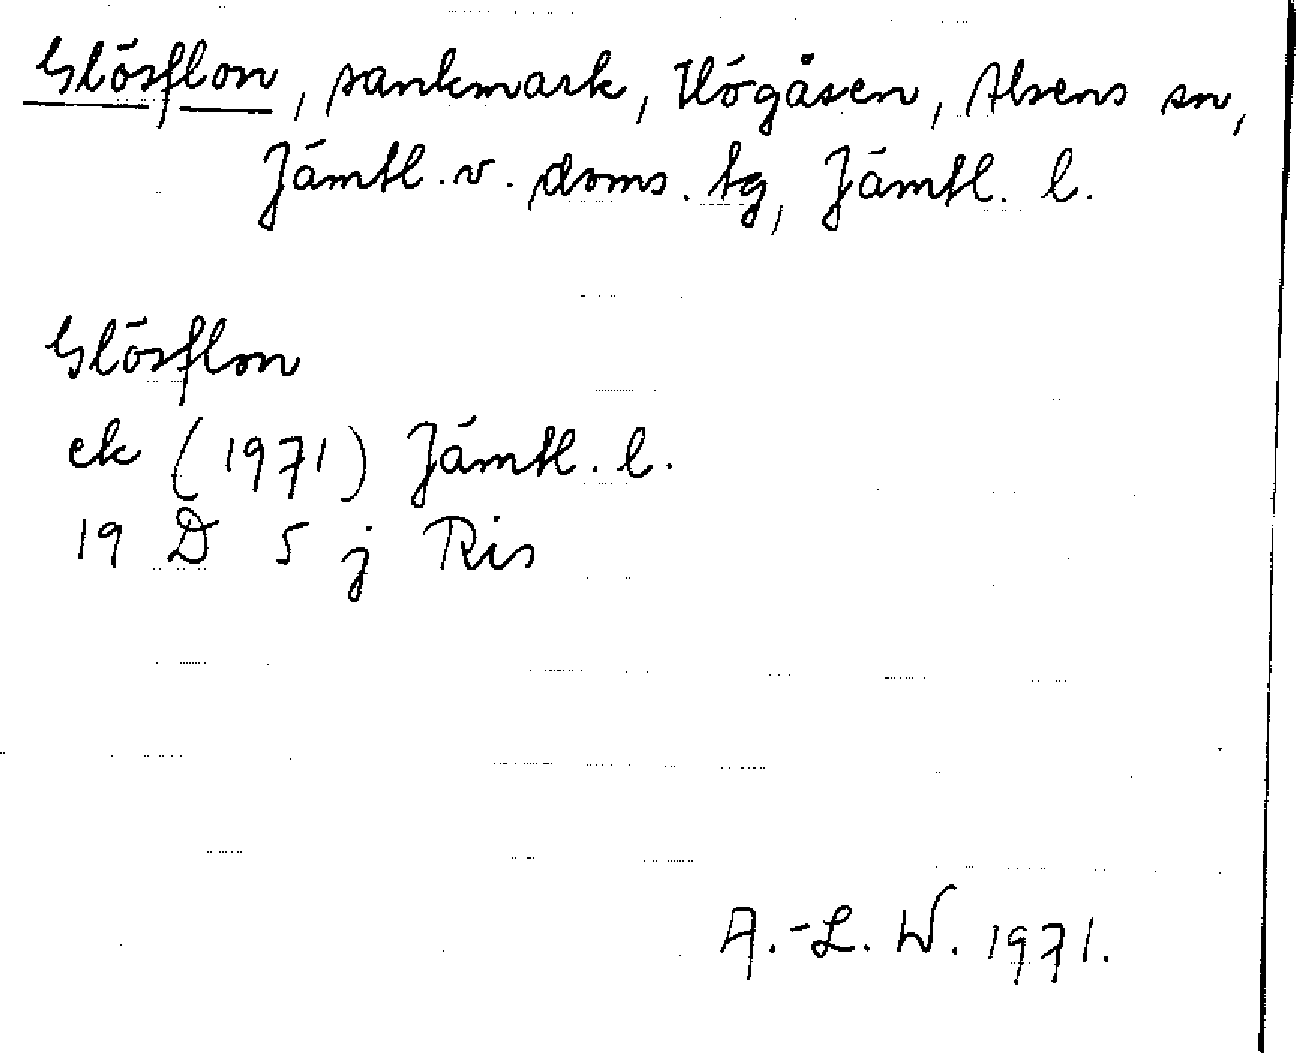 Glösflon, sankmark, Högåsen, Alsens sn,
Jämtl. v. doms. tg, Jämtl. l.
Glösflon
ek (1971) Jämtl. l.
19 D 5 j Ris
A.-L. W. 1971.